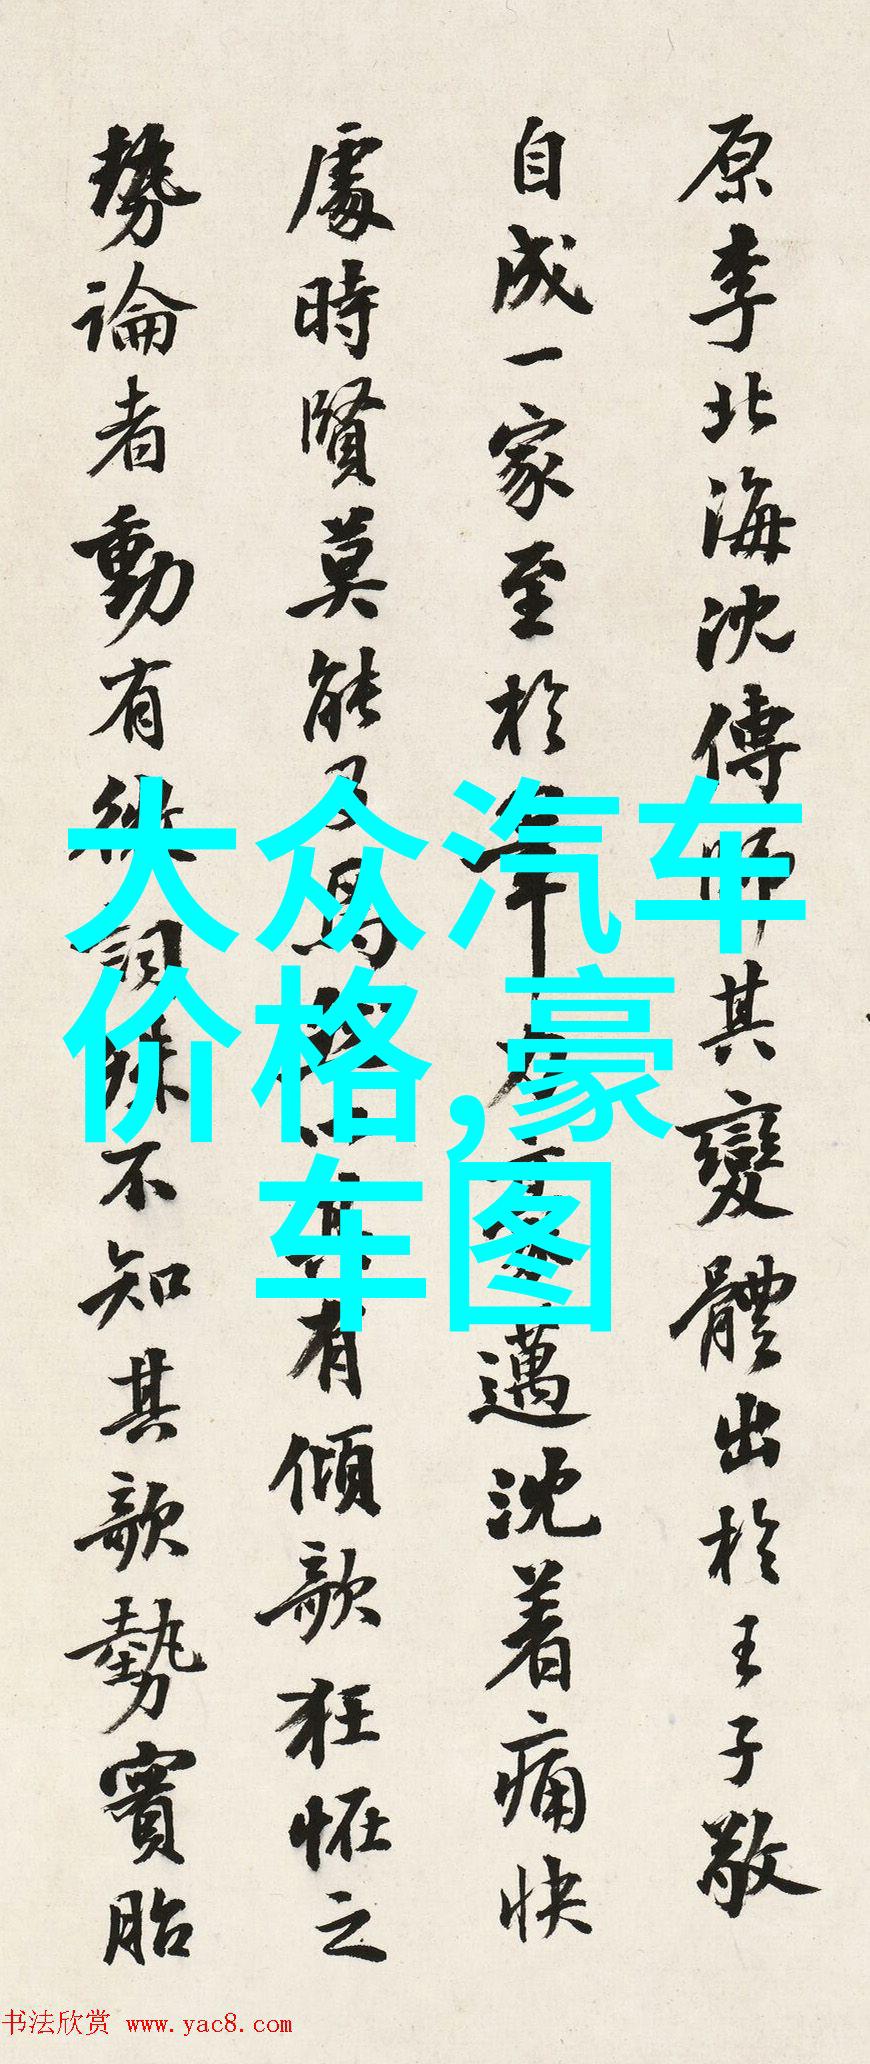 原李北海沈傳師其變體出於王子敬
自成一家至於筆力豪邁沈着痛快
處時賢莫能乃爲有傾欹狂怪之
勢論者動有微詞殊不知其欹勢實胎
大众汽车
价格,豪
车图
书法欣赏 www.yac8.com